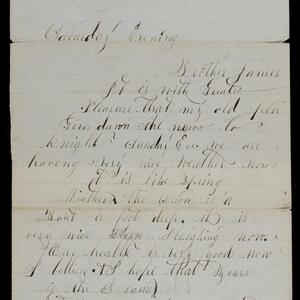 Saturday Evening
Brother James
It is with Great
Pleasure that my old pen
Gives down the news to
night Sunday Eve we are
haveing very nice weather now
it is like Spring
Weather the snow is a
Bout a foot deep it is
very nice Sleighing now
Our health is very good now
I hope that yours
is the Same